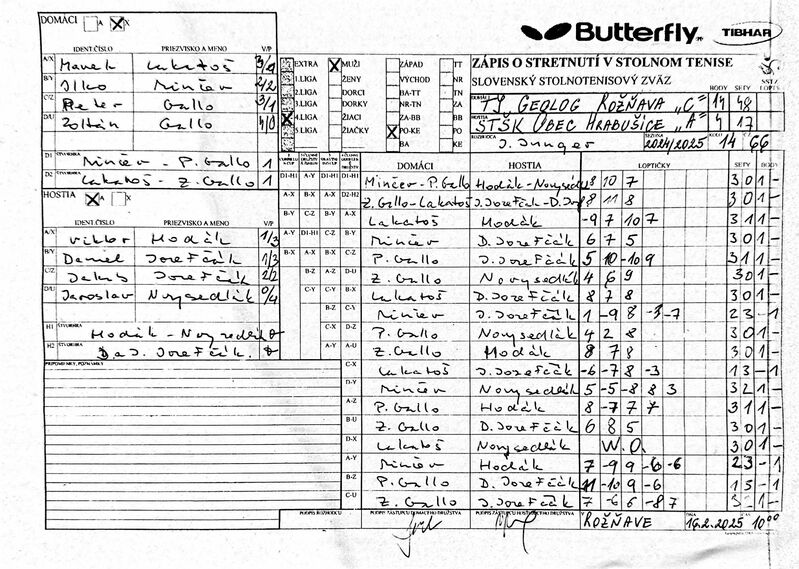 DOMÁCI A X
Butterfly TIBHAR
IDENT.ČÍSLO PRIEZVISKO A MENO V/P
A/X Marek Lakatoš 3/1
B/Y Ilko Minčev 2/2
C/Z Peter Gallo 3/1
D/U Zoltán Gallo 4/0
D1 ŠTVORHRA Minčev - P. Gallo 1
D2 ŠTVORHRA Lakatoš - Z. Gallo 1
HOSTIA X
IDENT.ČÍSLO PRIEZVISKO A MENO V/P
A/X Viktor Hodák 1/3
B/Y Daniel Jozefčák 1/3
C/Z Jakub Jozefčák 2/2
D/U Jaroslav Novysedlák 0/4
H1 ŠTVORHRA Hodák - Novysedlák 0
H2 ŠTVORHRA D. a J. Jozefčák 0
PRIPOMIENKY, POZNÁMKY
EXTRA X MUŽI ZÁPAD TT
1.LIGA ŽENY VÝCHOD NR
2.LIGA DORCI BA-TT TN
3.LIGA DORKY NR-TN ZA
X 4.LIGA ŽIACI ZA-BB BB
5.LIGA ŽIAČKY X PO-KE PO
BA KE
ZÁPIS O STRETNUTÍ V STOLNOM TENISE
SLOVENSKÝ STOLNOTENISOVÝ ZVÄZ
BODY SETY
DOMÁCI TJ GEOLOG ROŽŇAVA „C“ 14 48
HOSTIA STŠK OBEC HRABUŠICE „A“ 4 17
ROZHODCA J. Junger SEZÓNA 2024/2025 KOLO 14 66
DOMÁCI HOSTIA LOPTIČKY SETY BODY
D1-H1 Minčev - P. Gallo Hodák - Novysedlák 8 10 7 3 0 1 -
D2-H2 Z. Gallo - Lakatoš J. Jozefčák - D. Joz 8 11 8 3 0 1 -
A-X Lakatoš Hodák -9 7 10 7 3 1 1 -
B-Y Minčev D. Jozefčák 6 7 5 3 0 1 -
C-Z P. Gallo J. Jozefčák 5 10 -10 9 3 1 1 -
D-U Z. Gallo Novysedlák 4 6 9 3 0 1 -
A-Y Lakatoš D. Jozefčák 8 7 8 3 0 1 -
B-Z Minčev J. Jozefčák 1 -9 8 -3 -7 2 3 - 1
C-U P. Gallo Novysedlák 4 2 8 3 0 1 -
D-X Z. Gallo Hodák 8 7 8 3 0 1 -
Lakatoš J. Jozefčák -6 -7 8 -3 1 3 - 1
Minčev Novysedlák 5 -5 -8 8 3 3 2 1 -
P. Gallo Hodák 8 -7 7 7 3 1 1 -
Z. Gallo D. Jozefčák 6 8 5 3 0 1 -
Lakatoš Novysedlák W.O. 3 0 1 -
Minčev Hodák 7 -9 9 -6 -6 2 3 - 1
P. Gallo D. Jozefčák 11 -10 9 -6 1 3 - 1
Z. Gallo J. Jozefčák 7 -6 6 -8 7 3 1 -
PODPIS ROZHODCU PODPIS ZÁSTUPCU DOMÁCEHO DRUŽSTVA PODPIS ZÁSTUPCU HOSŤUJÚCEHO DRUŽSTVA
V ROŽŇAVE 16.2.2025 10⁰⁰